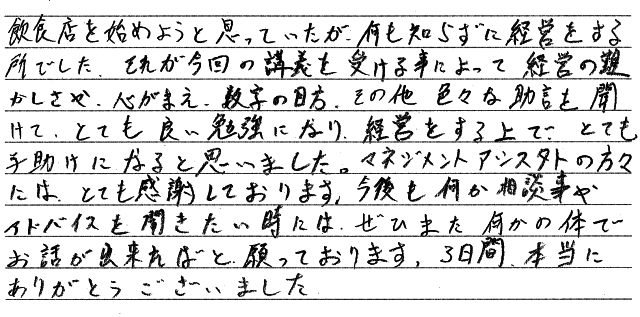 飲食店を始めようと思っていたが、何も知らずに経営をする
所でした。それが今回の講義を受ける事によって経営の難
かしさや、心がまえ、数字の目方、その他色々な助言を聞
けて、とても良い勉強になり、経営をする上で、とても
手助けになると思いました。マネジメントアシスタトの方々
には、とても感謝しております。今後も何か相談事や
アドバイスを聞きたい時には、ぜひまた何かの体で
お話が出来ればと願っております。3日間、本当に
ありがとうございました